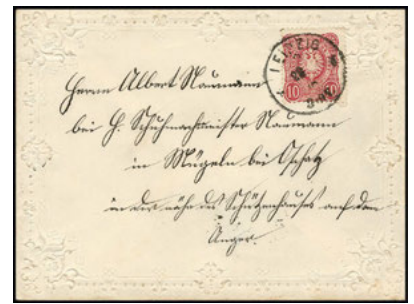 LEIPZIG
10
Herrn Albert Naumann
bei H. Schuhmachermeister Naumann
in Mügeln bei Oschatz
in der nähe des Schützenhauses auf dem
Anger.